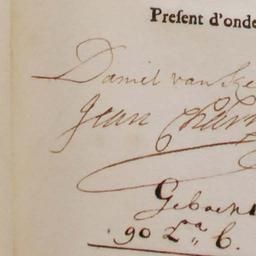 Present d'onde
Daniel van
Jean Char
Geboekt
90 L.a C.